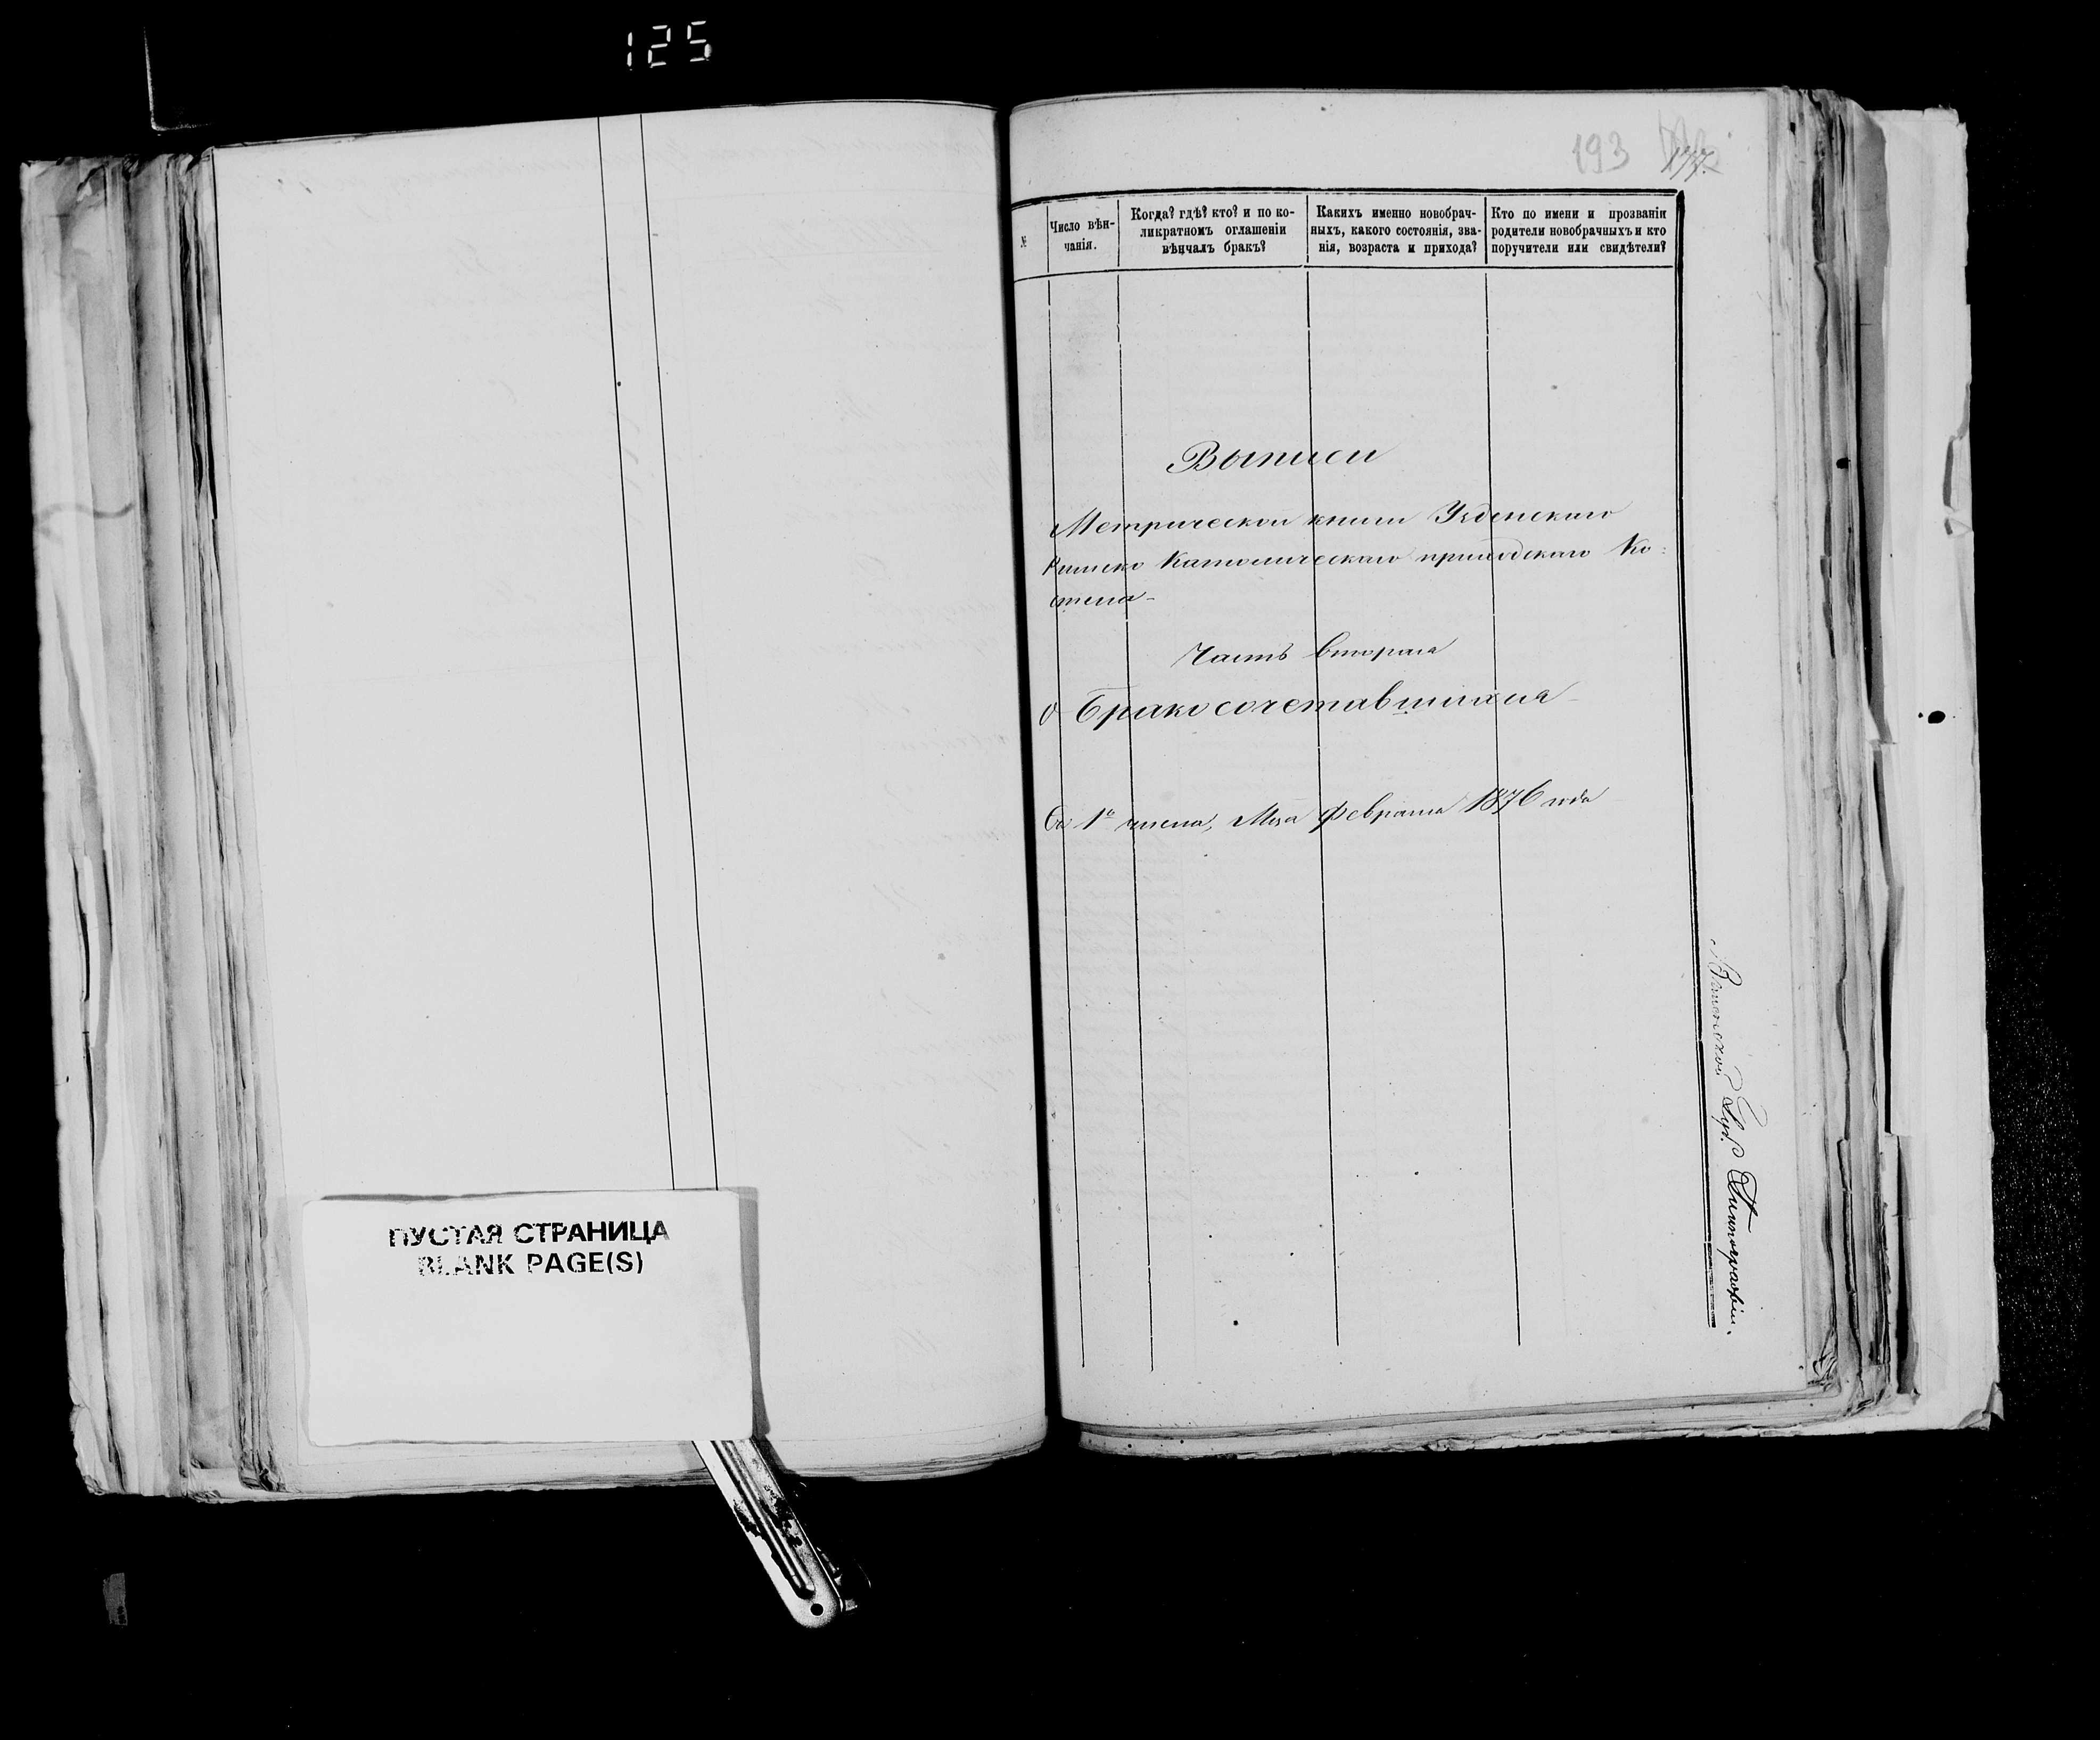 125
193
177.
№
Число вѣн-
чанія.
Когда? гдѣ? кто? и по ко-
ликратномъ оглашеніи
вѣнчалъ бракъ?
Какихъ именно новобрач-
ныхъ, какого состоянія, зва-
нія, возраста и прихода?
Кто по имени и прозванія
родители новобрачныхъ и кто
поручители или свидѣтели?
Выписи
Метрической книги Узденскаго
Римско Католическаго приходскаго Ко:
стела
Часть вторая
о Бракосочетавшихся
Съ 1го числа, Мца Февраля 1876 года
Губ. Типографіи.
ПУСТАЯ СТРАНИЦА
BLANK PAGE(S)